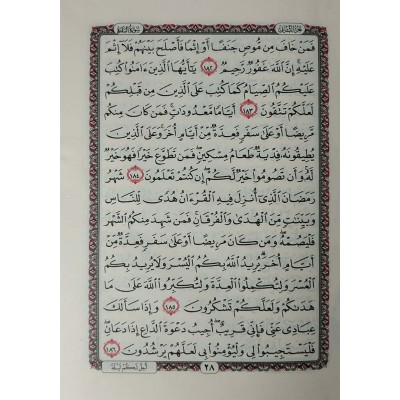 الجزء الثاني
سورة البقرة
فَمَنْ خَافَ مِن مُّوصٍ جَنَفًا أَوْ إِثْمًا فَأَصْلَحَ بَيْنَهُمْ فَلَا إِثْمَ
عَلَيْهِ إِنَّ اللَّهَ غَفُورٌ رَّحِيمٌ ١٨٢ يَا أَيُّهَا الَّذِينَ ءَامَنُوا كُتِبَ
عَلَيْكُمُ الصِّيَامُ كَمَا كُتِبَ عَلَى الَّذِينَ مِن قَبْلِكُمْ
لَعَلَّكُمْ تَتَّقُونَ ١٨٣ أَيَّامًا مَّعْدُودَاتٍ فَمَن كَانَ مِنكُم
مَّرِيضًا أَوْ عَلَىٰ سَفَرٍ فَعِدَّةٌ مِّنْ أَيَّامٍ أُخَرَ وَعَلَى الَّذِينَ
يُطِيقُونَهُ فِدْيَةٌ طَعَامُ مِسْكِينٍ فَمَن تَطَوَّعَ خَيْرًا فَهُوَ خَيْرٌ
لَّهُ وَأَن تَصُومُوا خَيْرٌ لَّكُمْ إِن كُنتُمْ تَعْلَمُونَ ١٨٤ شَهْرُ
رَمَضَانَ الَّذِي أُنزِلَ فِيهِ الْقُرْءَانُ هُدًى لِّلنَّاسِ
وَبَيِّنَاتٍ مِّنَ الْهُدَىٰ وَالْفُرْقَانِ فَمَن شَهِدَ مِنكُمُ الشَّهْرَ
فَلْيَصُمْهُ وَمَن كَانَ مَرِيضًا أَوْ عَلَىٰ سَفَرٍ فَعِدَّةٌ مِّنْ
أَيَّامٍ أُخَرَ يُرِيدُ اللَّهُ بِكُمُ الْيُسْرَ وَلَا يُرِيدُ بِكُمُ
الْعُسْرَ وَلِتُكْمِلُوا الْعِدَّةَ وَلِتُكَبِّرُوا اللَّهَ عَلَىٰ مَا
هَدَاكُمْ وَلَعَلَّكُمْ تَشْكُرُونَ ١٨٥ وَإِذَا سَأَلَكَ
عِبَادِي عَنِّي فَإِنِّي قَرِيبٌ أُجِيبُ دَعْوَةَ الدَّاعِ إِذَا دَعَانِ
فَلْيَسْتَجِيبُوا لِي وَلْيُؤْمِنُوا بِي لَعَلَّهُمْ يَرْشُدُونَ ١٨٦
٢٨
أُحِلَّ لَكُمْ لَيْلَةَ